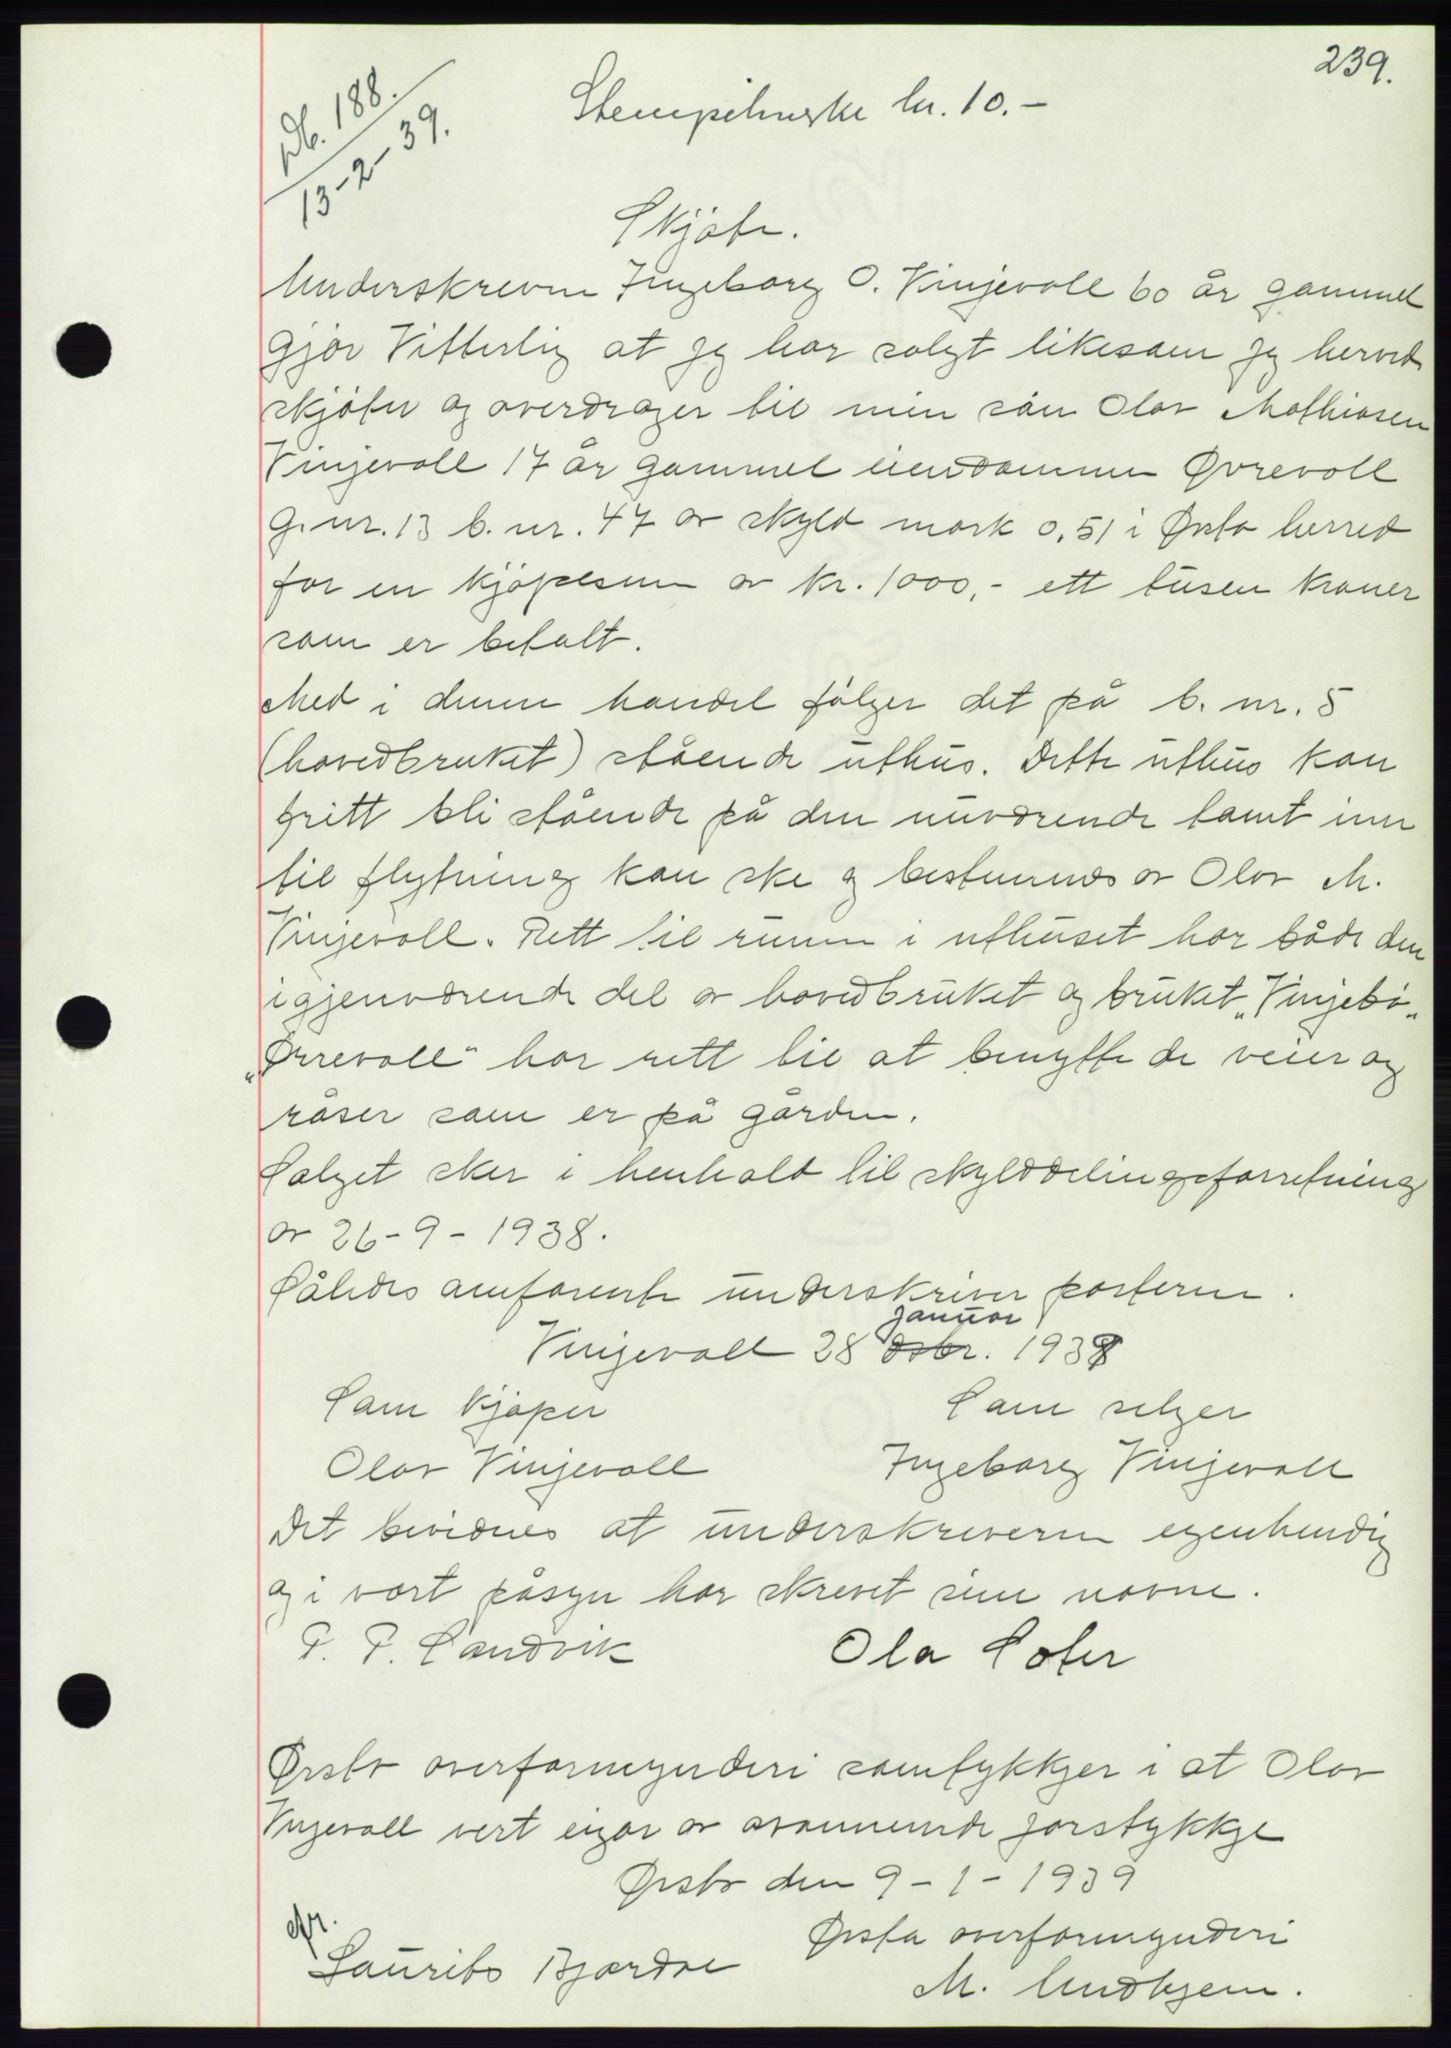 239.
Db. 188.
13-2-39.
Stempelmerke kr. 10.-
Skjøte.
Underskrevne Ingeborg O. Vinjevoll 60 år gammel
gjør Vitterlig at jeg har solgt likesom jeg herved
skjøter og overdrager til min sön Olav Mathiasen
Vinjevoll 17 år gammel eiendommen Øvrevoll
g. nr. 13 b. nr. 47 av skyld mark 0,51 i Ørsta herred
for en kjøpesum av kr. 1000,- ett tusen kroner
som er betalt.
Med i denne handel følger det på b. nr. 5
(hovedbruket) stående uthus. Dette uthus kan
fritt bli stående på den nuværende tomt inn
til flytning kan ske og bestemmes av Olav M.
Vinjevoll. Rett til rumm i uthuset har både den
igjenværende del av hovedbruket og bruket „Vinjebö„
„Øvrevoll" har rett til at benytte de veier og
råser som er på gården.
Salget sker i henhold til skylddelingsforretning
av 26-9-1938.
Således omforente underskriver parterne.
Vinjevoll 28 desbr. januar 1939
Som kjøper Som selger
Olav Vinjevoll Ingeborg Vinjevoll
Det bevidnes at underskriverne egenhendig
og i vort påsyn har skrevet sine navne.
P. P. Sandvik Ola Sæter
Ørsta overformynderi samtykkjer i at Olav
Vinjevoll vert eigar av ovannemnde jorstykkje
Ørsta den 9-1-1939
Ørsta overformynderi
efr.
Laurits Bjørdal M. Undhjem.